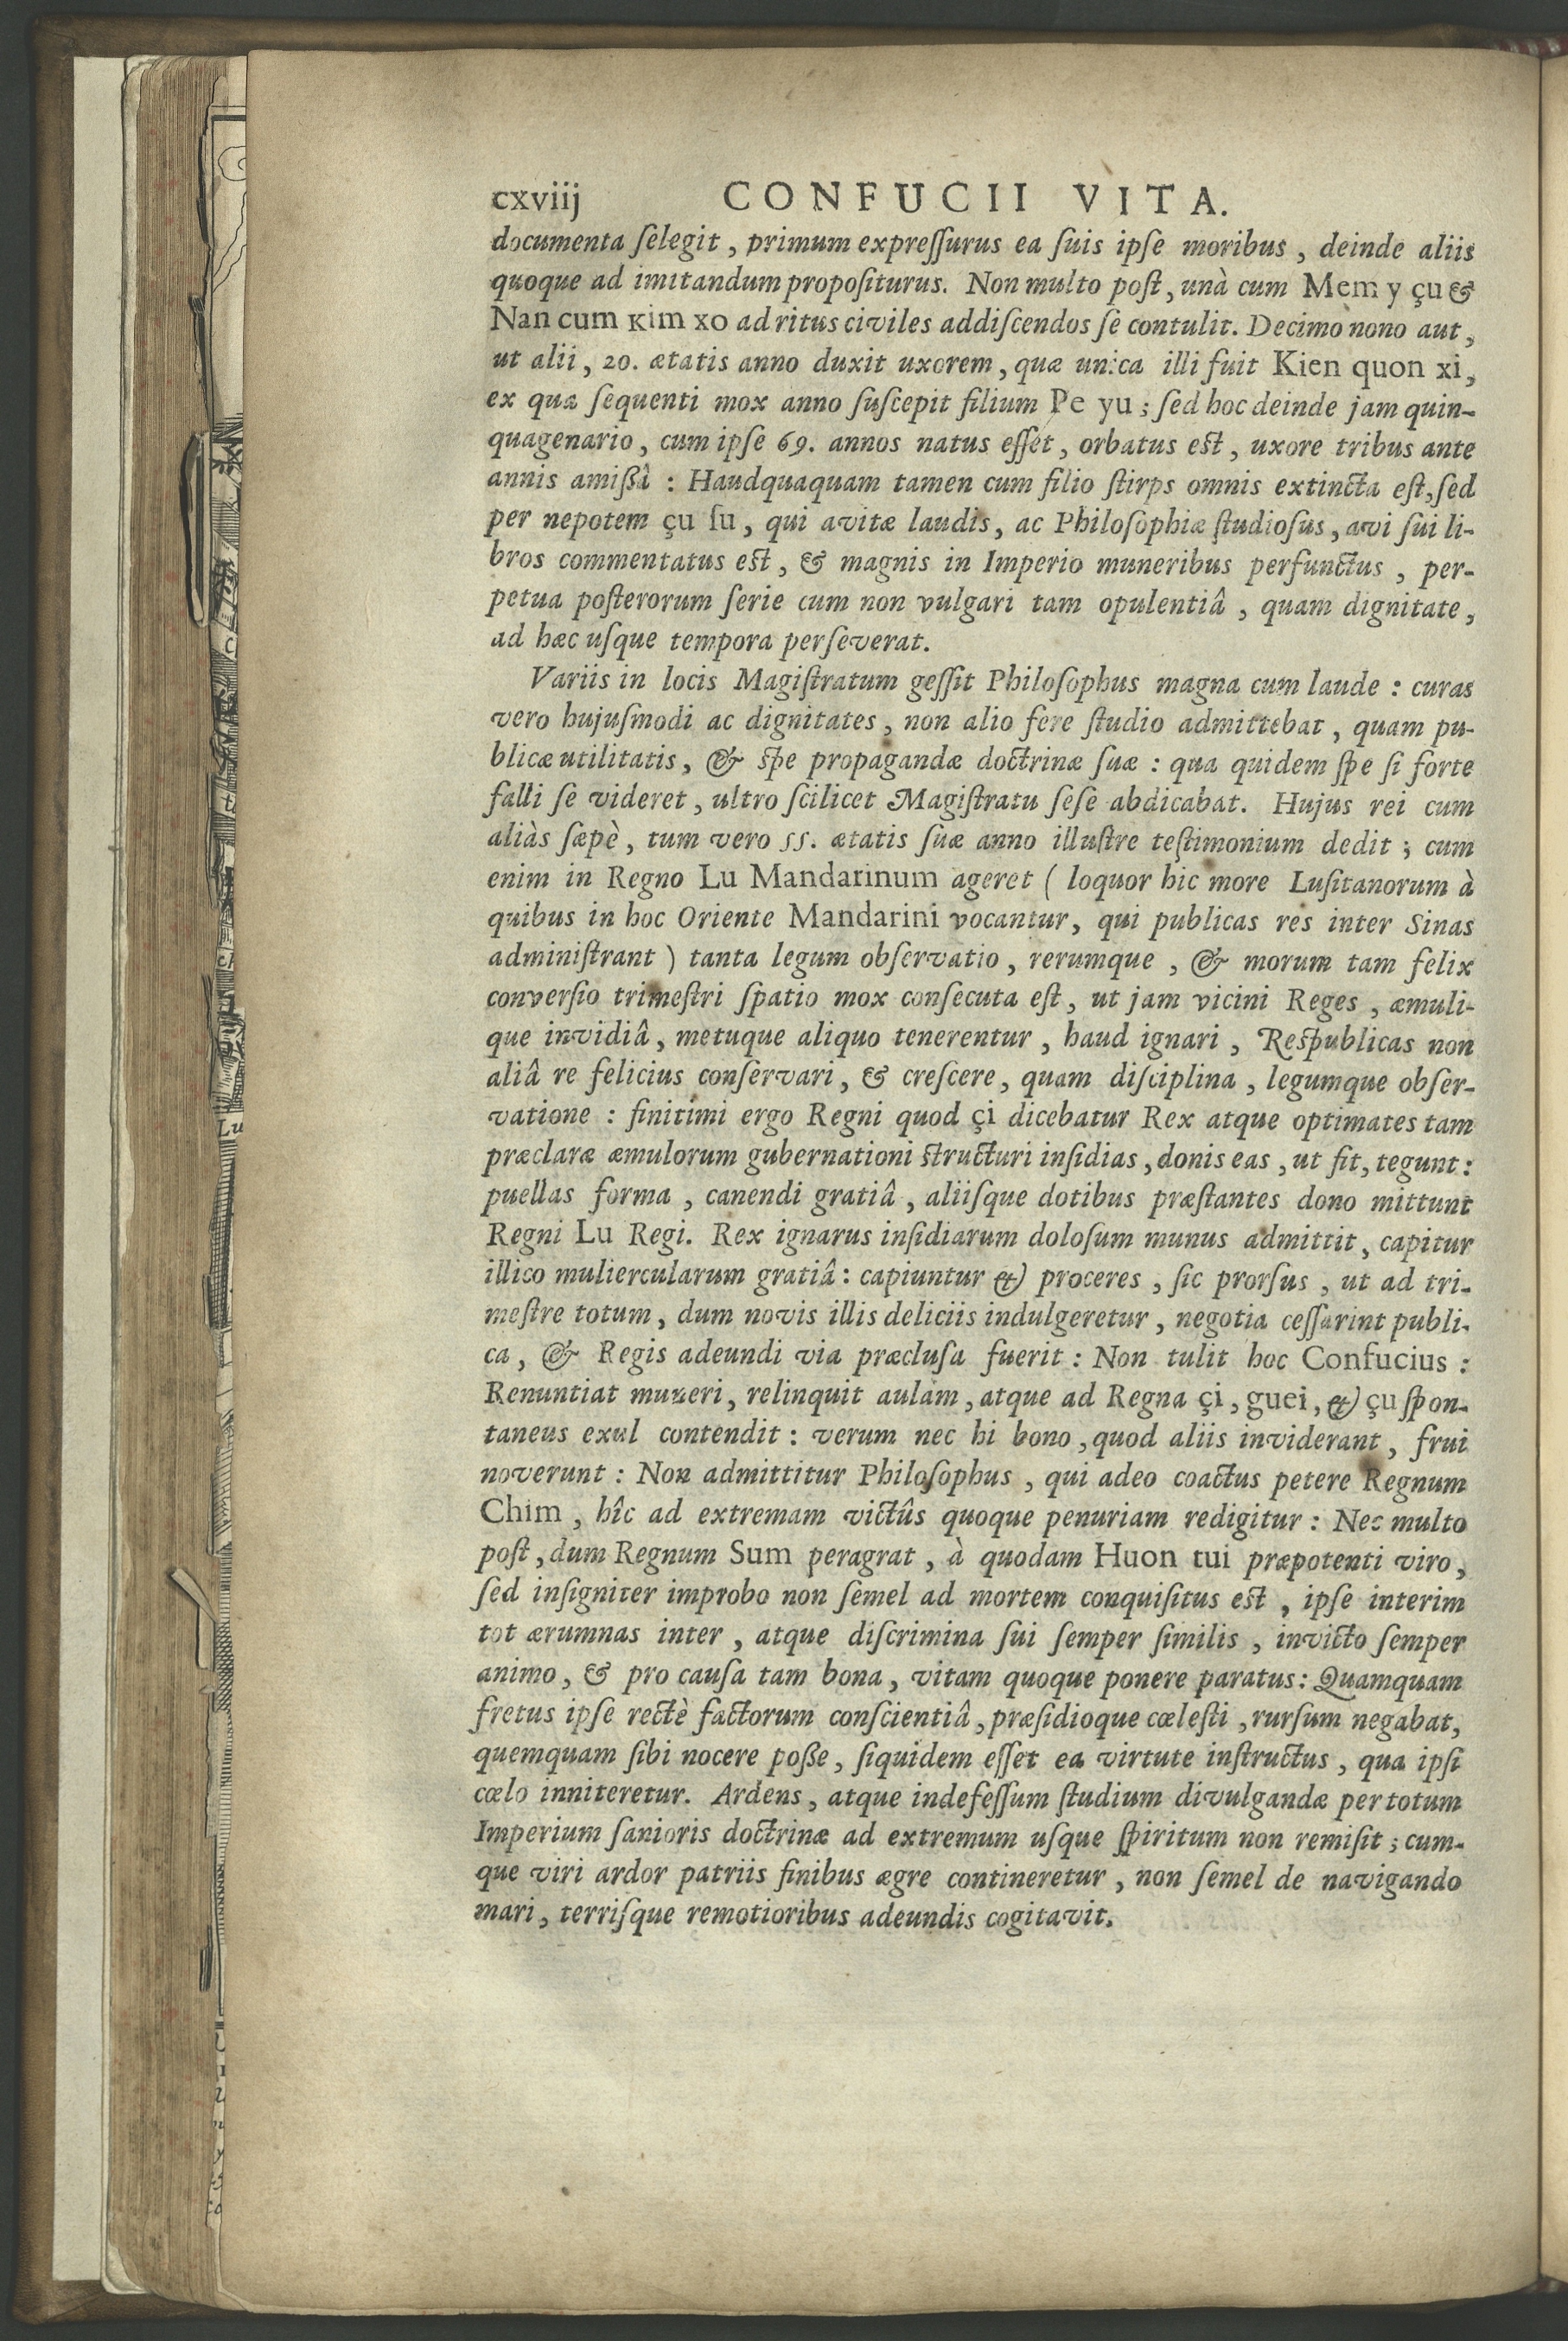 cxviij CONFUCII VITA.
documenta ſelegit, primum expreſſurus ea ſuis ipſe moribus, deinde aliis
quoque ad imitandum propoſiturus. Non multo poſt, unà cum Mem y çu &
Nan cum Kim xo ad ritus civiles addiſcendos ſe contulit. Decimo nono aut,
ut alii, 20. ætatis anno duxit uxorem, quæ unica illi fuit Kien quon xi,
ex qua ſequenti mox anno ſuſcepit filium Pe yu; ſed hoc deinde jam quin-
quagenario, cum ipſe 69. annos natus eſſet, orbatus eſt, uxore tribus ante
annis amiſſâ: Haudquaquam tamen cum filio ſtirps omnis extincta eſt, ſed
per nepotem çu ſu, qui avitæ laudis, ac Philoſophiæ ſtudioſus, avi ſui li-
bros commentatus eſt, & magnis in Imperio muneribus perfunctus, per-
petua poſterorum ſerie cum non vulgari tam opulentiâ, quam dignitate,
ad hæc uſque tempora perſeverat.
Variis in locis Magiſtratum geſſit Philoſophus magna cum laude: curas
vero hujuſmodi ac dignitates, non alio fere ſtudio admittebat, quam pu-
blicæ utilitatis, & ſpe propagandæ doctrinæ ſuæ: qua quidem ſpe ſi forte
falli ſe videret, ultro ſcilicet Magiſtratu ſeſe abdicabat. Hujus rei cum
aliàs ſæpè, tum vero 55. ætatis ſuæ anno illuſtre teſtimonium dedit; cum
enim in Regno Lu Mandarinum ageret (loquor hic more Luſitanorum à
quibus in hoc Oriente Mandarini vocantur, qui publicas res inter Sinas
adminiſtrant) tanta legum obſervatio, rerumque, & morum tam felix
converſio trimeſtri ſpatio mox conſecuta eſt, ut jam vicini Reges, æmuli-
que invidiâ, metuque aliquo tenerentur, haud ignari, Reſpublicas non
aliâ re felicius conſervari, & creſcere, quam diſciplina, legumque obſer-
vatione: finitimi ergo Regni quod çi dicebatur Rex atque optimates tam
præclaræ æmulorum gubernationi ſtructuri inſidias, donis eas, ut fit, tegunt:
puellas forma, canendi gratiâ, aliiſque dotibus præſtantes dono mittunt
Regni Lu Regi. Rex ignarus inſidiarum doloſum munus admittit, capitur
illico muliercularum gratiâ: capiuntur & proceres, ſic prorſus, ut ad tri-
meſtre totum, dum novis illis deliciis indulgeretur, negotia ceſſarint publi-
ca, & Regis adeundi via præcluſa fuerit: Non tulit hoc Confucius:
Renuntiat muneri, relinquit aulam, atque ad Regna çi, guei, & çu ſpon-
taneus exul contendit: verum nec hi bono, quod aliis inviderant, frui
noverunt: Non admittitur Philoſophus, qui adeo coactus petere Regnum
Chim, hîc ad extremam victûs quoque penuriam redigitur: Nec multo
poſt, dum Regnum Sum peragrat, à quodam Huon tui præpotenti viro,
ſed inſigniter improbo non ſemel ad mortem conquiſitus eſt, ipſe interim
tot ærumnas inter, atque diſcrimina ſui ſemper ſimilis, invicto ſemper
animo, & pro cauſa tam bona, vitam quoque ponere paratus: Quamquam
fretus ipſe rectè factorum conſcientiâ, præſidioque cœleſti, rurſum negabat,
quemquam ſibi nocere poſſe, ſiquidem eſſet ea virtute inſtructus, qua ipſi
cœlo inniteretur. Ardens, atque indefeſſum ſtudium divulgandæ per totum
Imperium ſanioris doctrinæ ad extremum uſque ſpiritum non remiſit; cum-
que viri ardor patriis finibus ægre contineretur, non ſemel de navigando
mari, terriſque remotioribus adeundis cogitavit.